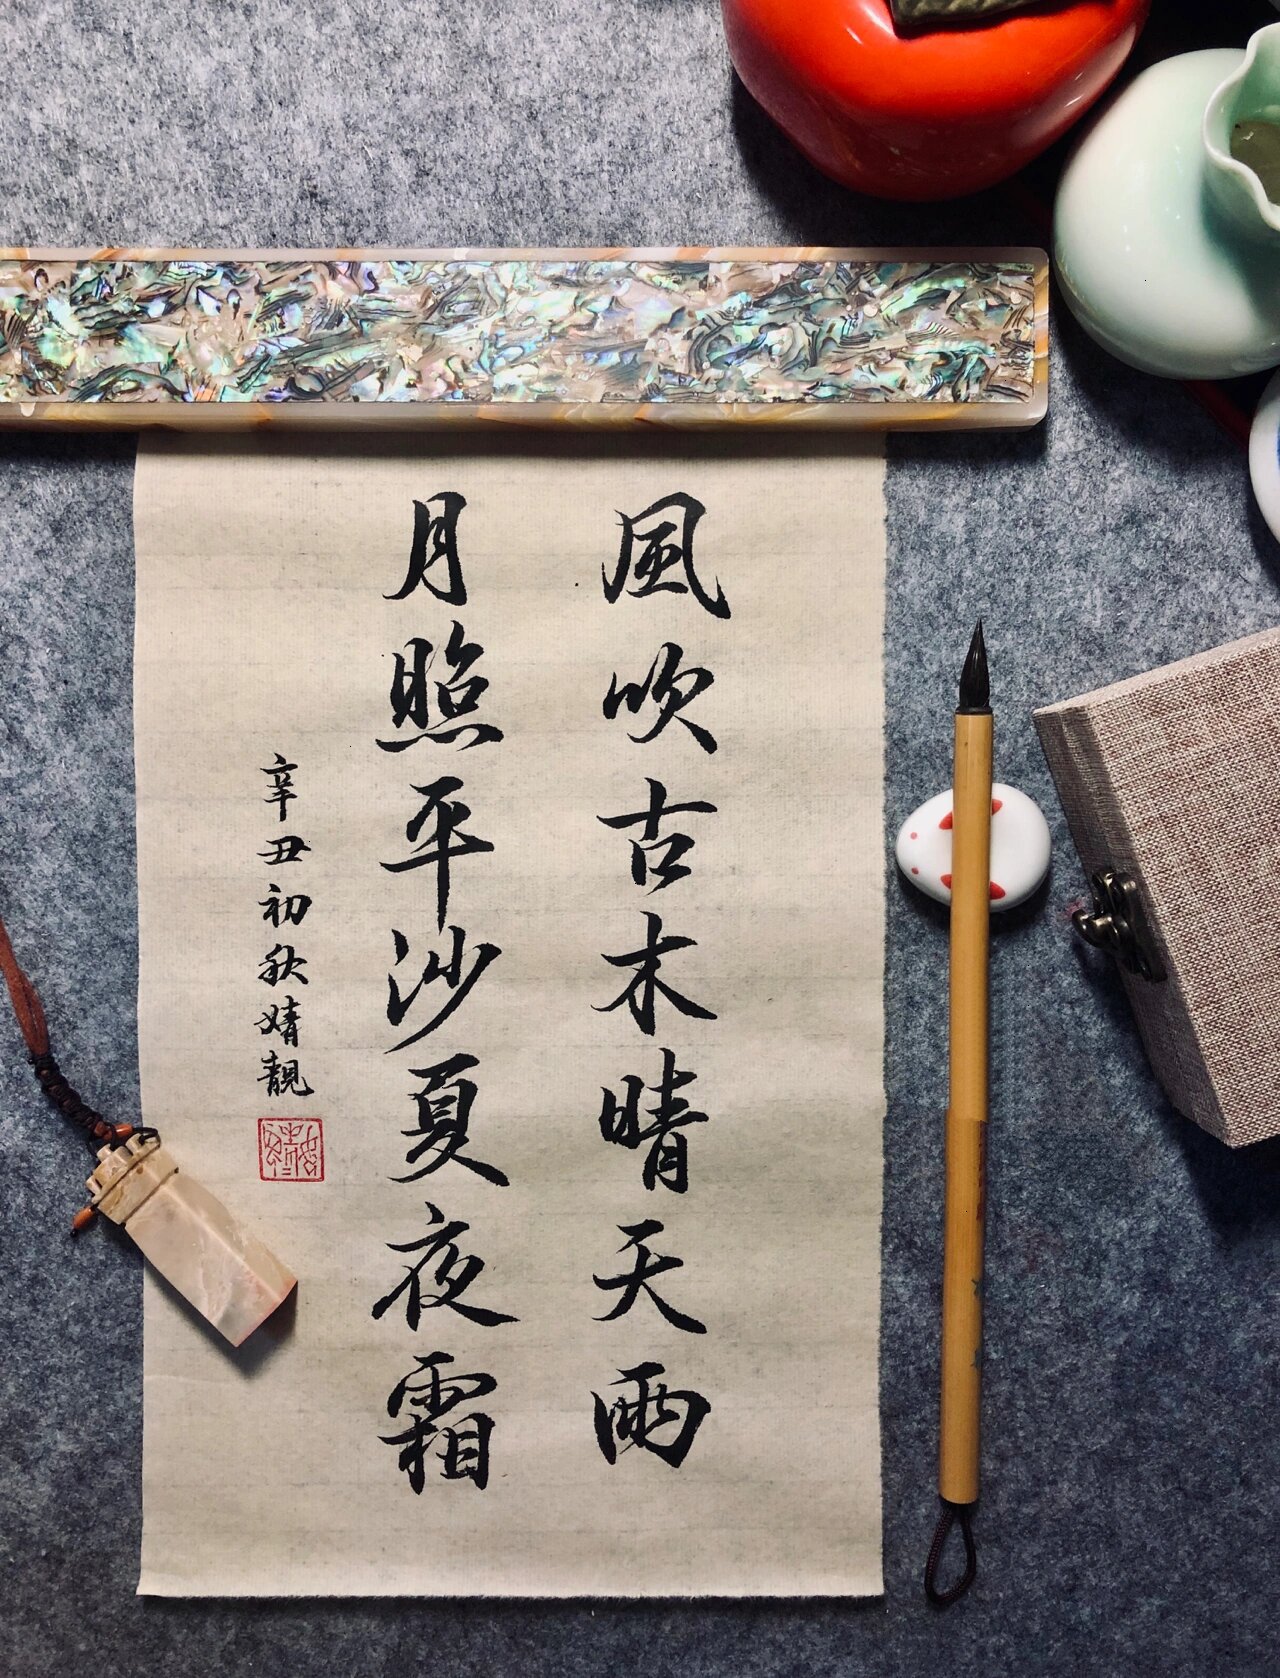 風吹古木晴天雨
月照平沙夏夜霜
辛丑初秋婧靚